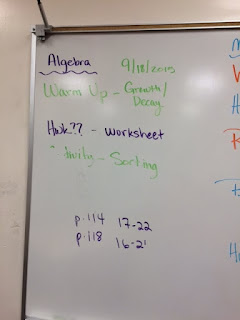 Algebra 9/18/2015
Warm Up - Growth/
Decay
Hwk?? - Worksheet
Sorting
p. 114 17-22
p. 118 16-21